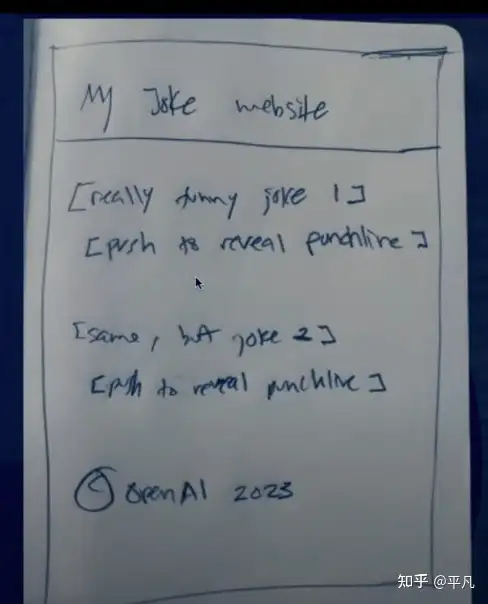 My Joke website
[really funny joke 1]
[push to reveal punchline]
[same, but joke 2]
[push to reveal punchline]
© OpenAI 2023
知乎 @平凡